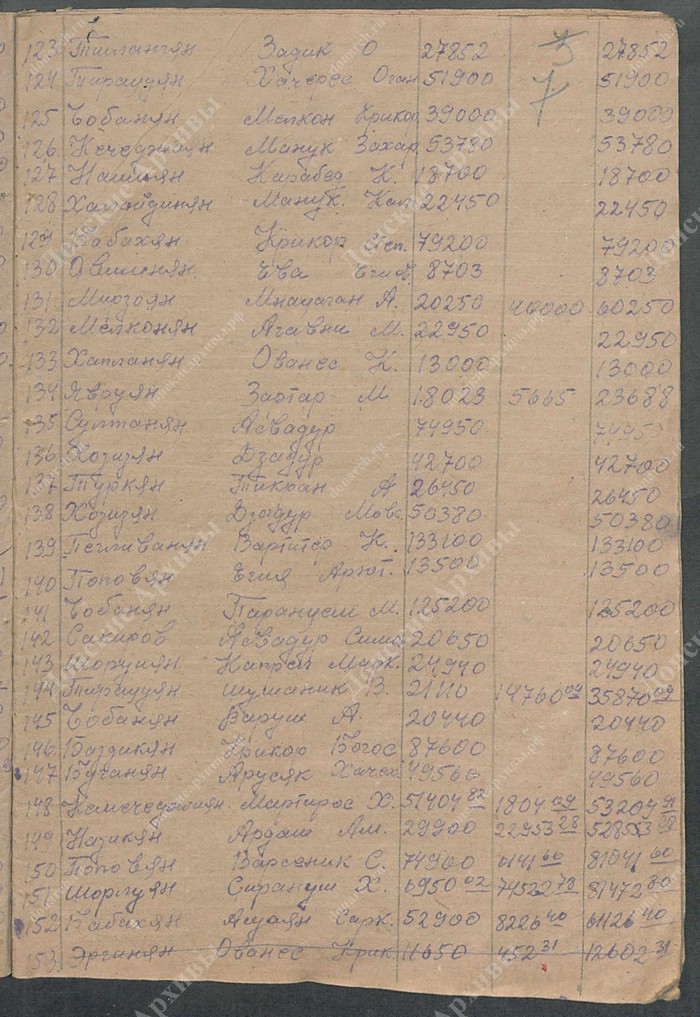 5
7
123 Тиглангян Задик О 27852 27852
124 Тирацуян Хачерес Оган 51900 51900
125 Чобанян Мелкон Крикор 39000 39000
126 Кечеджиян Манук Захар 53780 53780
127 Карабед К. 18700 18700
128 Манук. Кал 22450 22450
129 Бабахян Крикор Степ. 79200 79200
130 Ева 8703 8703
131 Мирзоян Мнацаган А. 20250 40000 60250
132 Мелконян Агавни М. 22950 22950
133 Хапланян Ованес К. 13000 13000
134 Явруян Заотар М 18023 5665 23688
135 Султанян Асвадур 74950 74950
136 Хозизян Дзадур 42700 42700
137 Туркян Тикран А 26450 26450
138 Хозизян Дзадур Мовс. 50380 50380
139 Пегливанян Вартитер К. 133100 133100
140 Поповян Егия Арют. 13500 13500
141 Чобанян Парануем М. 125200 125200
142 Сакиров Асвадур Симо 20650 20650
143 Шорлуян Капрел Марк. 24940 24940
144 Тирацуян Шушаник В. 21110 14760 09 35870 09
145 Чобанян Варуш А. 20440 20440
146 Баздикян Крикор Богос 87600 87600
147 Буганян Арусяк Хачер 49560 49560
148 Мартирос Х. 51404 82 1804 09 53209 91
149 Назикян Ардаш Ам. 29900 22953 28 52853 28
150 Поповян Варсеник С. 74900 6141 60 81041 60
151 Шорлуян Сирануш Х. 6950 02 74522 78 81472 80
152 Бабахян Сарк. 52900 8226 40 61126 40
153. Эргинян Ованес Крик. 11650 452 31 12602 31